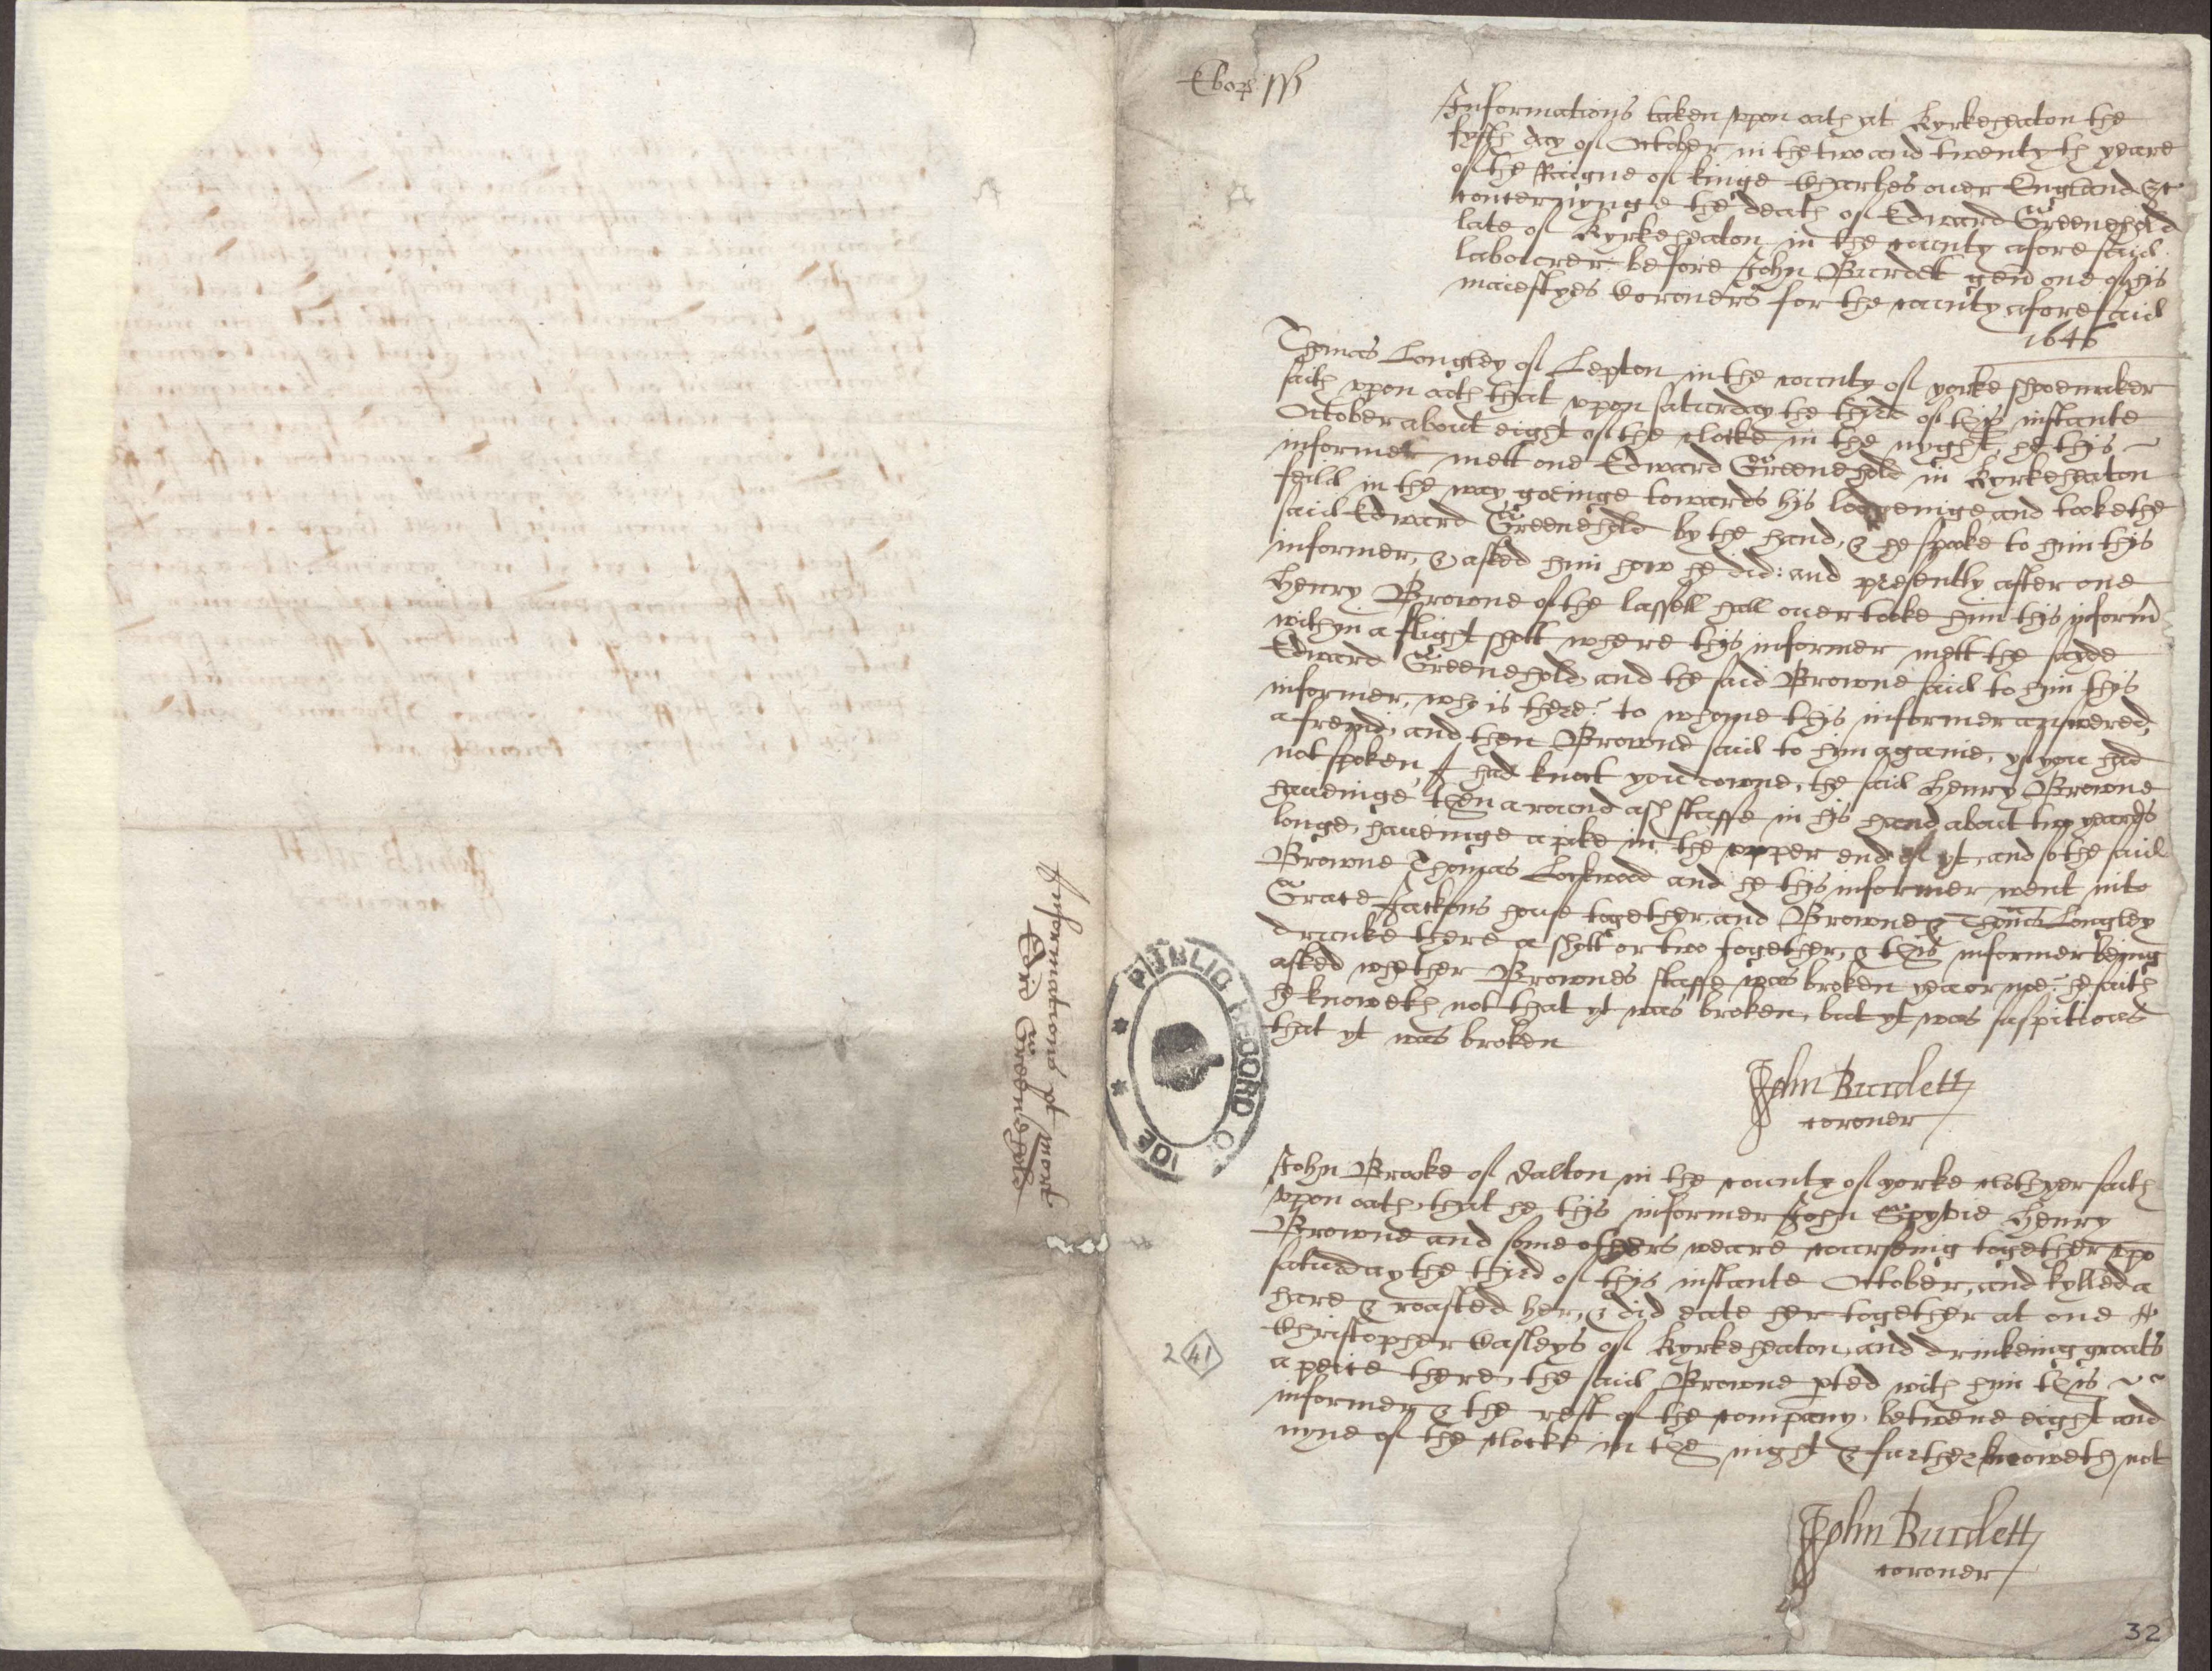 Ebor ss
Informations taken vpon oath at Kyrkeheaton the
fyfth day of October in the two and twentyth yeare
of the Raigne of kinge Charles ouer England &c
concerninge the death of Edward Greenehold
late of Kyrkeheaton in the county afore said
labourer before John Burdet gent one of his
maiestyes Coroners for the county aforesaid
1646
Thomas Longley of Lepton in the county of yorke shoemaker
saith vpon oath that vpon saturday the third of this instante
October about eight of the clocke in the nyght, he this
informer mett one Edward Greenehold in Kyrkeheaton
feild in the way goeinge towards his lodgeinge and tooke the
said Edward Greenehold by the hand, & he spoke to him this
informer, & asked him how he did: and presently after one
Henry Browne of the lassell hall ouer tooke him this inform
within a flight shott where this informer mett the sayde
Edward Greenehold, and the said Browne said to him this
informer, who is there? to whome this informer answered,
a frend, and then Browne said to him againe, yf you had
not spoken, I had knoct you downe, the said Henry Browne
haueinge then a round ash staffe in his hand about two yeards
longe, haueinge a pike in the vpper end of yt, and so the said
Browne Thomas Lockwood and he this informer went into
Grace Jacksons house together, and Browne & Thomas Longley
drunke there a shott or two together, & this informer being
asked whether Brownes staffe was broken yea or noe? he saith
he knoweth not that yt was broken, but yt was suspitious
that yt was broken
John Burdett
coroner
John Brooke of dalton in the county of yorke clothyer saith
vpon oath, that he this informer John Henry
Browne and some others weare courseing together vpo
saturday the third of this instante October, and kylled a
hare & roasted her, & did eate her together at one
Christopher Casleys of Kyrkeheaton, and drinkeing groats
a peice there, the said Browne pted with him this
informer & the rest of the company, betwene eight and
nyne of the clocke in the night & further knoweth not
John Burdett
coroner
Informations pt mort
Edri Greenehold
PUBLIC RECORD OFFICE
2 41
32